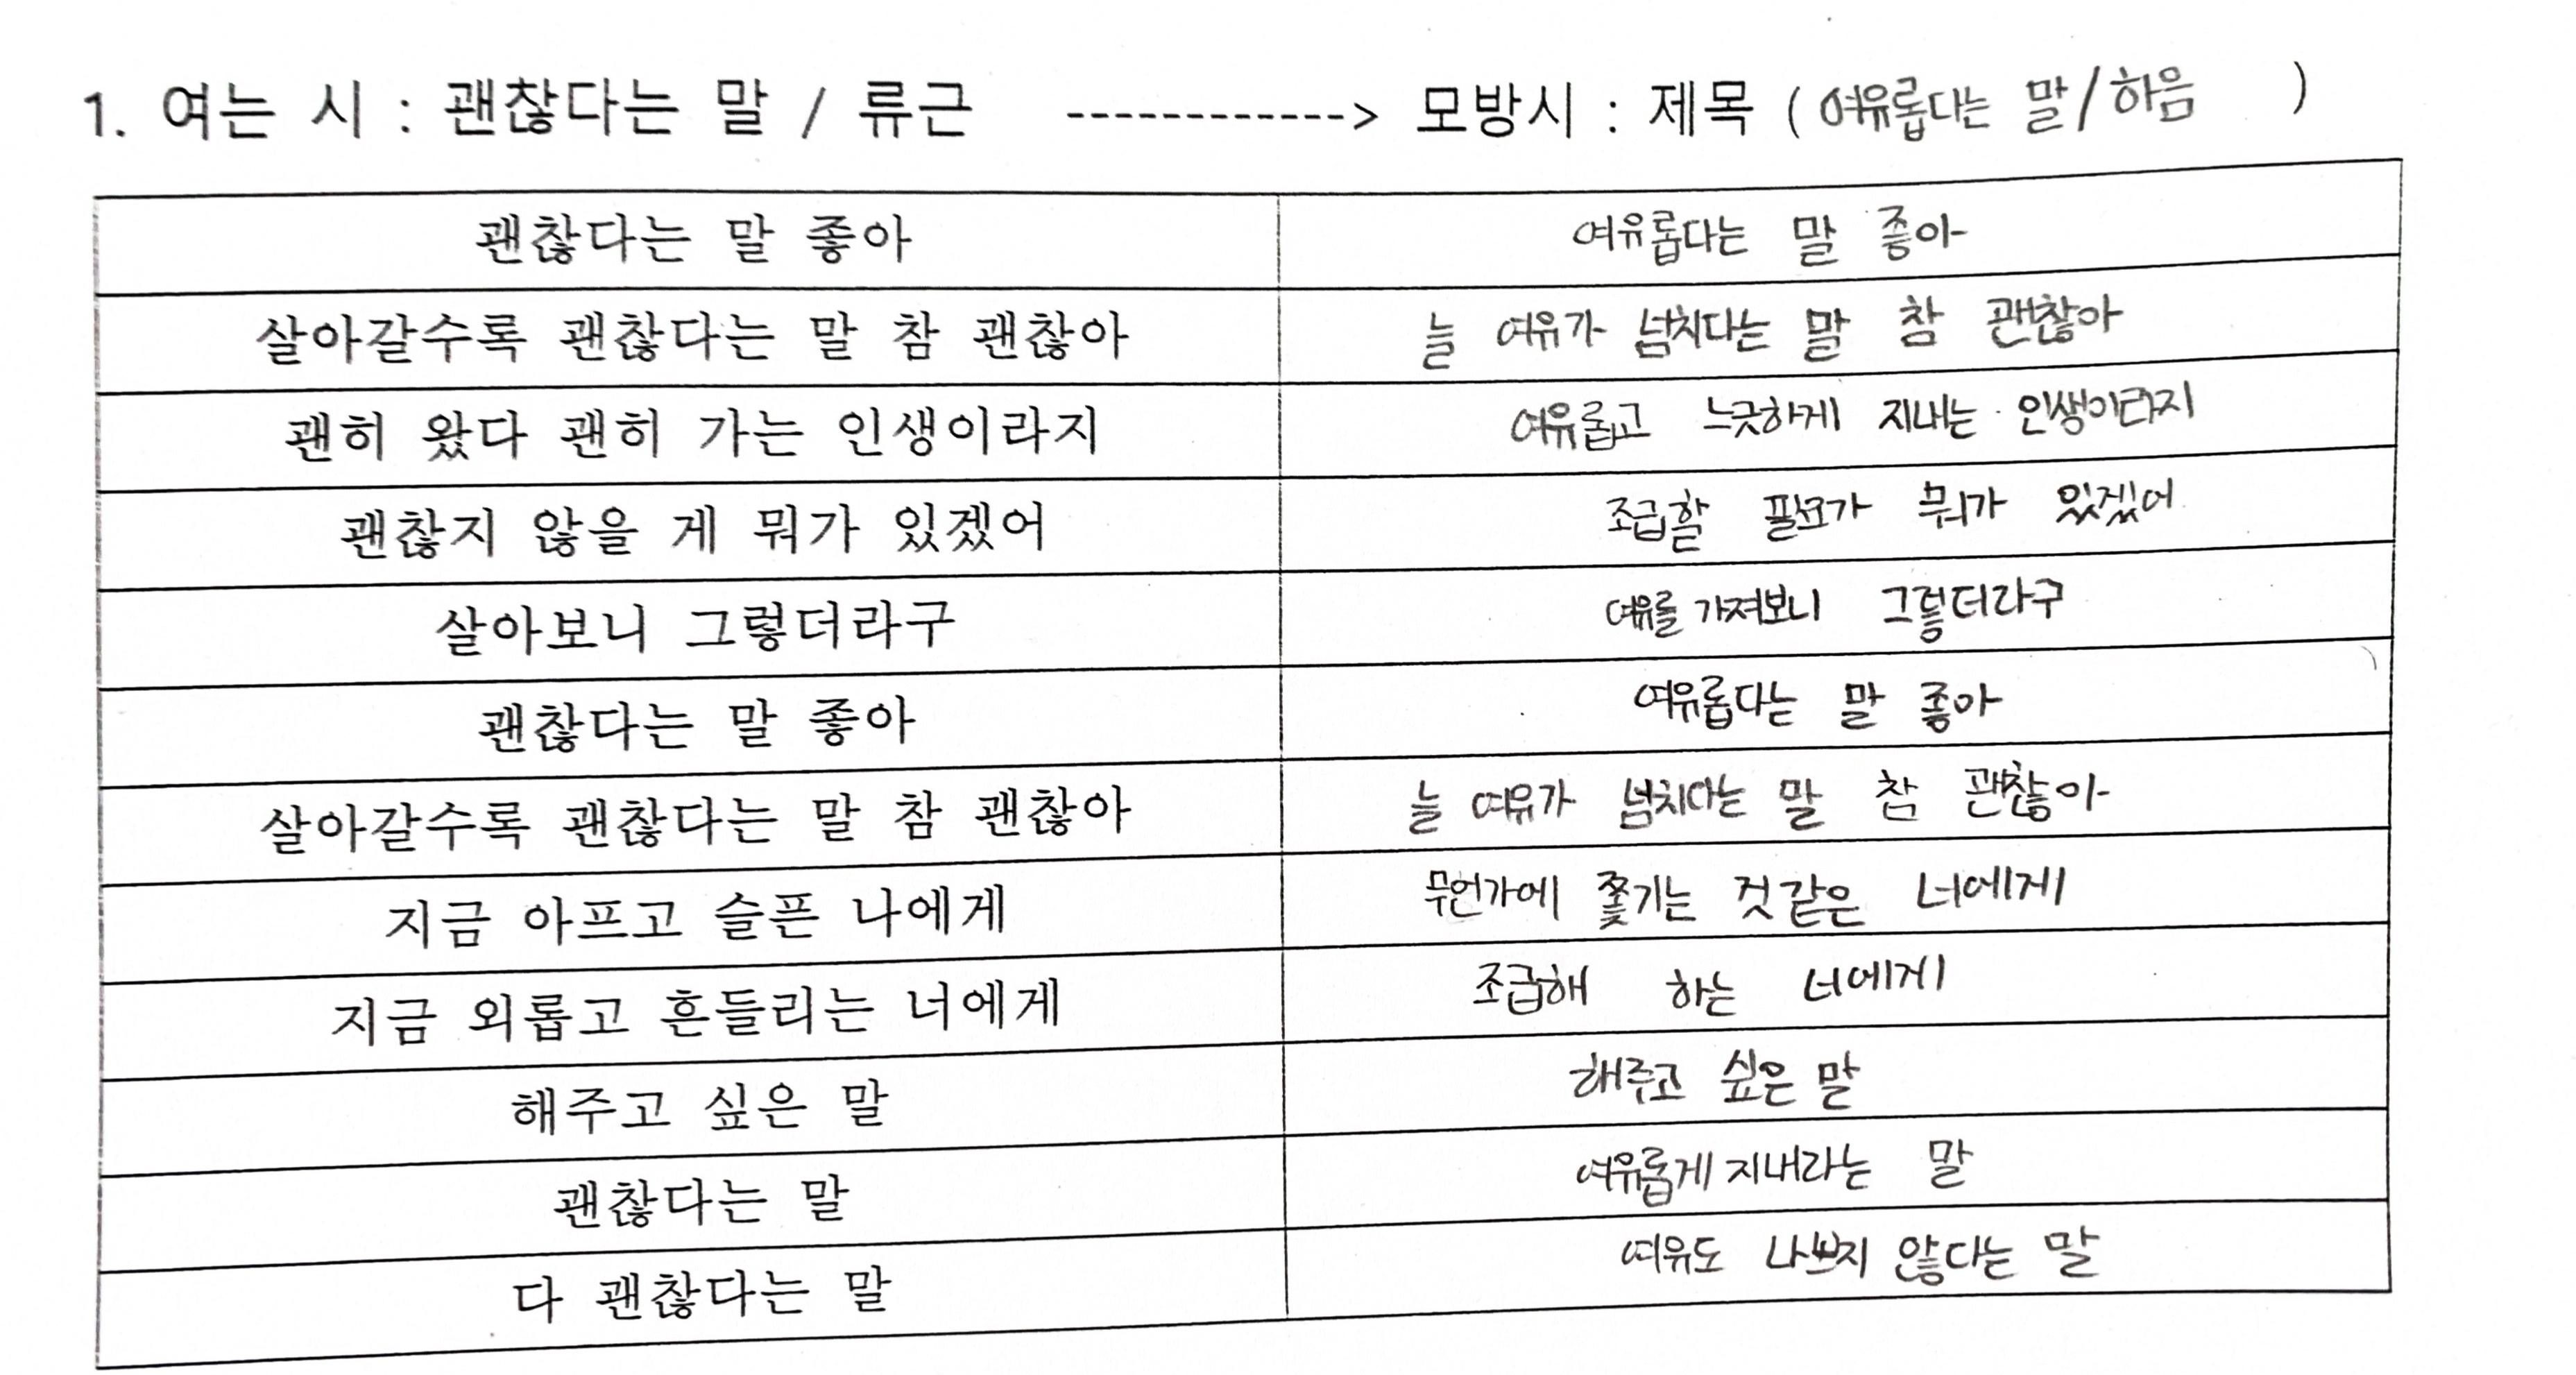 1. 여는 시 : 괜찮다는 말 / 류근 ------------> 모방시 : 제목 ( 여유롭다는 말/하음 )
괜찮다는 말 좋아 여유롭다는 말 좋아
살아갈수록 괜찮다는 말 참 괜찮아 늘 여유가 넘치다는 말 참 괜찮아
괜히 왔다 괜히 가는 인생이라지 여유롭고 느긋하게 지내는 인생이라지
괜찮지 않을 게 뭐가 있겠어 조급할 필요가 뭐가 있겠어
살아보니 그렇더라구 여유를 가져보니 그렇더라구
괜찮다는 말 좋아 여유롭다는 말 좋아
살아갈수록 괜찮다는 말 참 괜찮아 늘 여유가 넘치다는 말 참 괜찮아
지금 아프고 슬픈 나에게 무언가에 쫓기는 것 같은 너에게
지금 외롭고 흔들리는 너에게 조급해 하는 너에게
해주고 싶은 말 해주고 싶은 말
괜찮다는 말 여유롭게 지내라는 말
다 괜찮다는 말 여유도 나쁘지 않다는 말